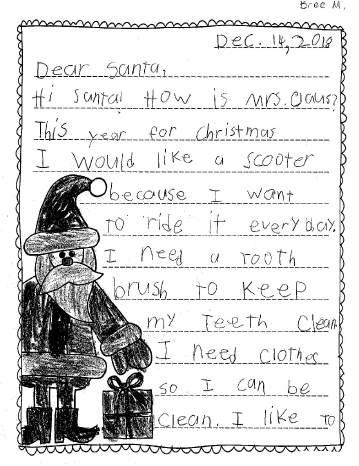 Bree M.
Dec. 14, 2018
Dear Santa,
Hi Santa! How is Mrs. Claus?
This year for christmas
I would like a scooter
because I want
to ride it everyday.
I need a tooth
brush to keep
my teeth clean
I need clothes
so I can be
clean. I like to